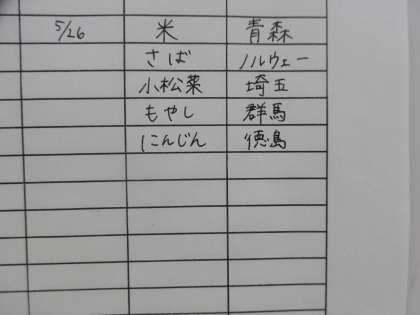 5/26 米 青森
さば ノルウェー
小松菜 埼玉
もやし 群馬
にんじん 徳島